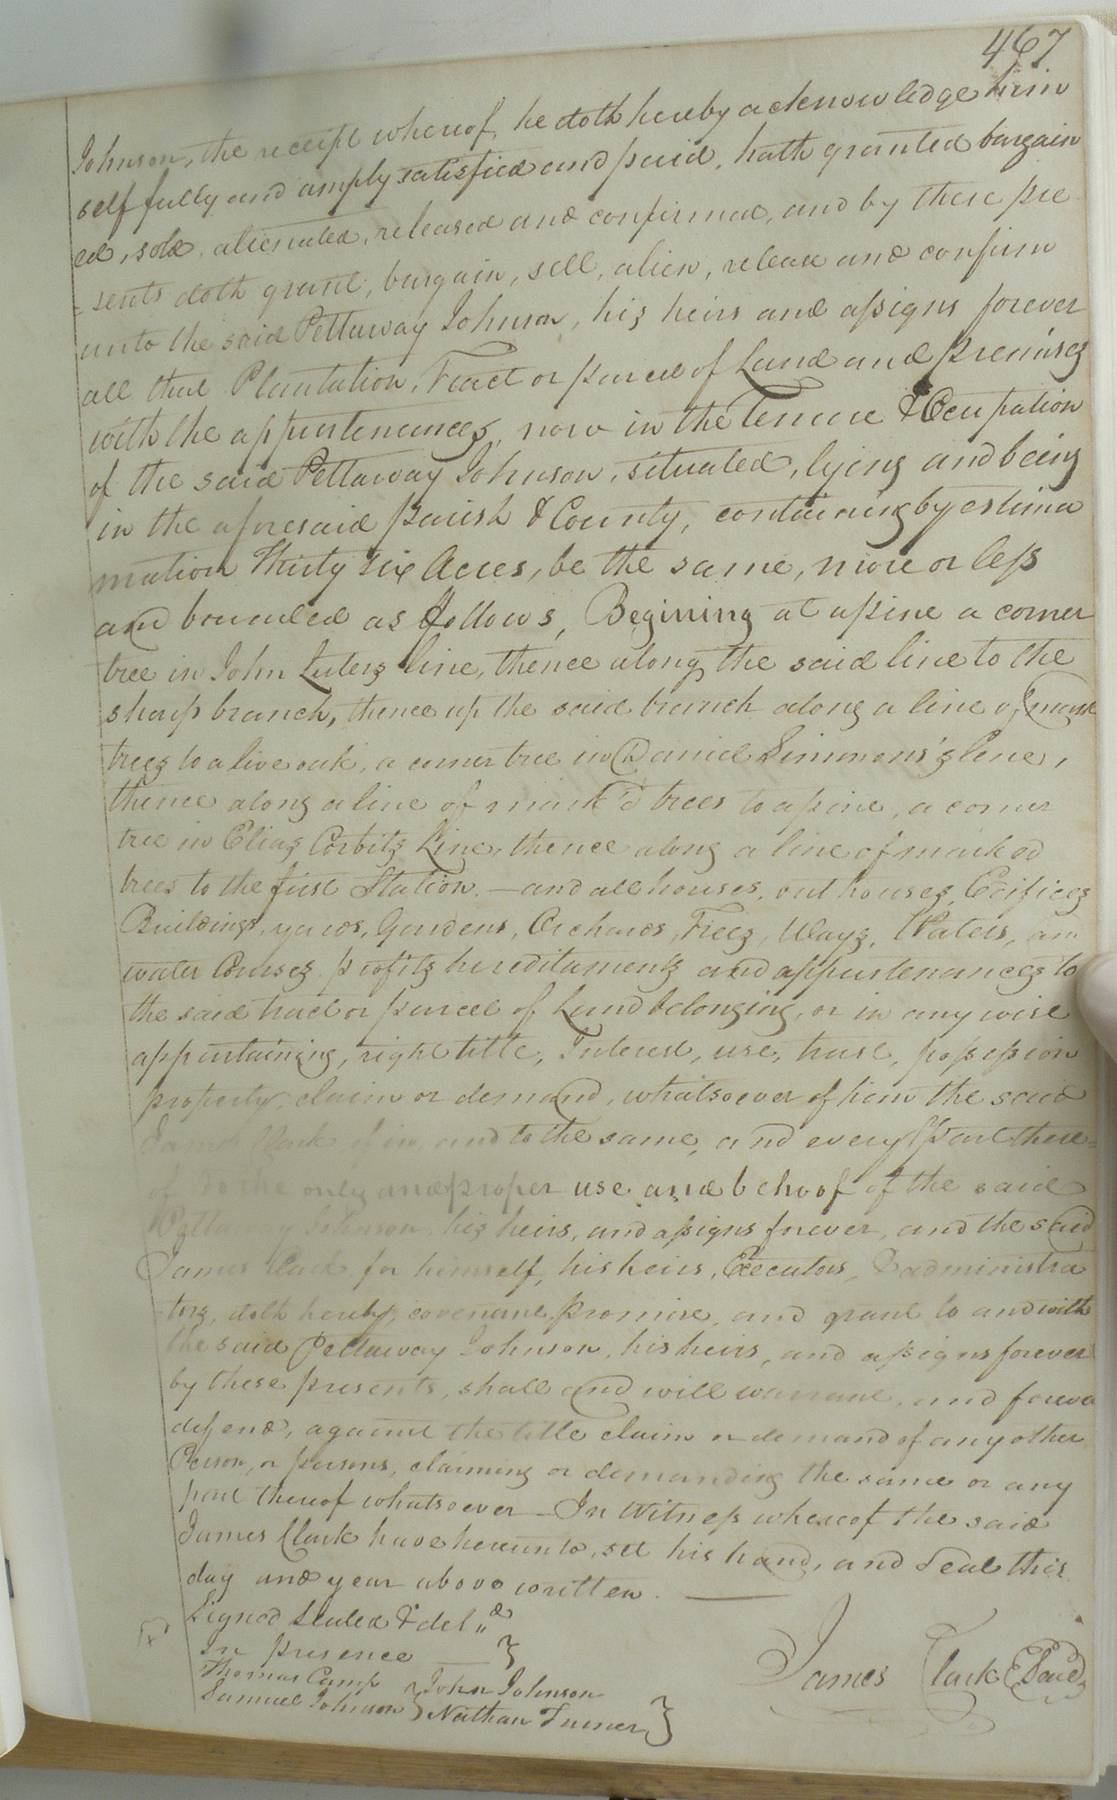 467
Johnson, the receipt whereof, he doth hereby acknowledge him
self fully and amply satisfied and paid, hath granted bargain
ed, sold, alienated, released and confirmed, and by these pre
=sents doth grant, bargain, sell, alien, release and confirm
unto the said Pettaway Johnson, his heirs and assigns forever
all that Plantation, Tract or parcel of Land and premises
with the appurtenances, now in the Tenure & Occupation
of the said Pettaway Johnson, situated, lying and being
in the aforesaid parish & County, containing by estima
mation Thirty six Acres, be the same, more or less
and bounded as follows, Begining at a pine a corner
tree in John Luters line, thence along the said line to the
sharp branch, thence up the said branch along a line of mark
trees to a live oak, a corner tree in Daniel Simmons's line,
thence along a line of mark'd trees to a pine, a corner
tree in Elias Corbitz Line, thence along a line of marked
trees to the first Station. — and all houses, out houses, Edifices
Buildings, yards, Gardens, Orchards, Trees, Ways, Waters, an
water Courses profits hereditaments and appurtenances to
the said tract or parcel of Land belonging, or in any wise
appurtaining, right title, Interest, use, trust, possession
property, claim or demand, whatsoever of him the said
James Clark of in, and to the same, and every part there=
of to the only and proper use and behoof of the said
Pettaway Johnson his heirs, and assigns forever, and the said
James Clark for himself, his heirs, Executors, & administra
tors, doth hereby covenant, promise, and grant to and with
the said Pettaway Johnson, his heirs, and assigns forever
by these presents, shall and will warrant, and foreve
defend, against the title claim or demand of any other
Person, or persons, claiming or demanding the same or any
part thereof whatsoever — In Witness whereof the said
James Clark have hereunto, set his hand, and Seal this
day and year above written. —
Signed Sealed & del"d
In presence }
Thomas Camp } John Johnson
Samuel Johnson } Nathan Turner }
James Clark (Seal)